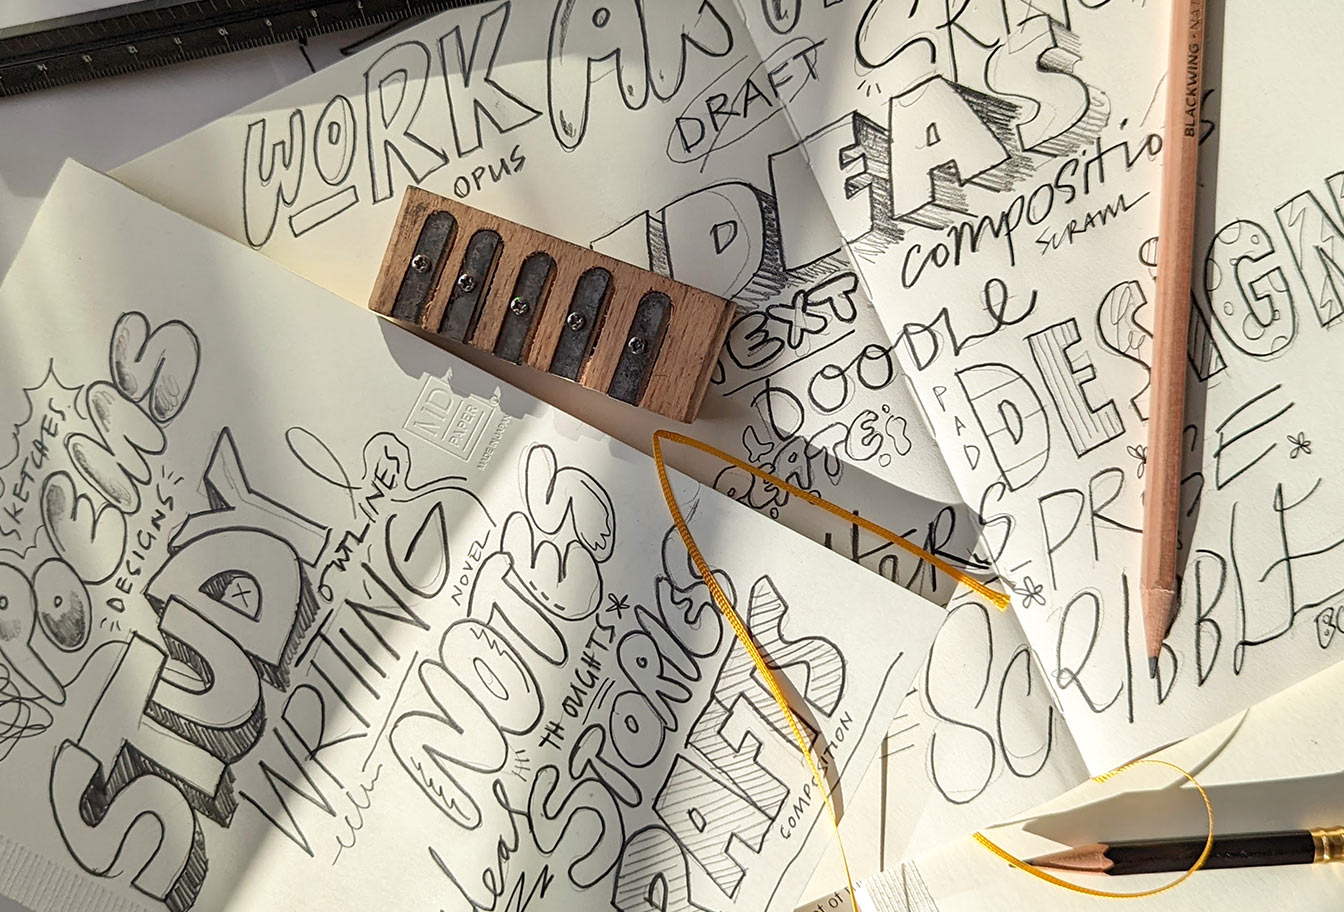 WORK AN
OPUS
DRAFT
IDEAS
compositio
SCRAWL
TEXT
DOODLE
PAD
DESIGN
BLACKWING
SCRIBBLE
SC
ND
PAPER
SKETCHES
POEMS
DESIGNS
STUDY
OUTLINES
WRITING
NOVEL
NOTES
THOUGHTS*
STORIES
DRAFTS
COMPOSITION
Ideas